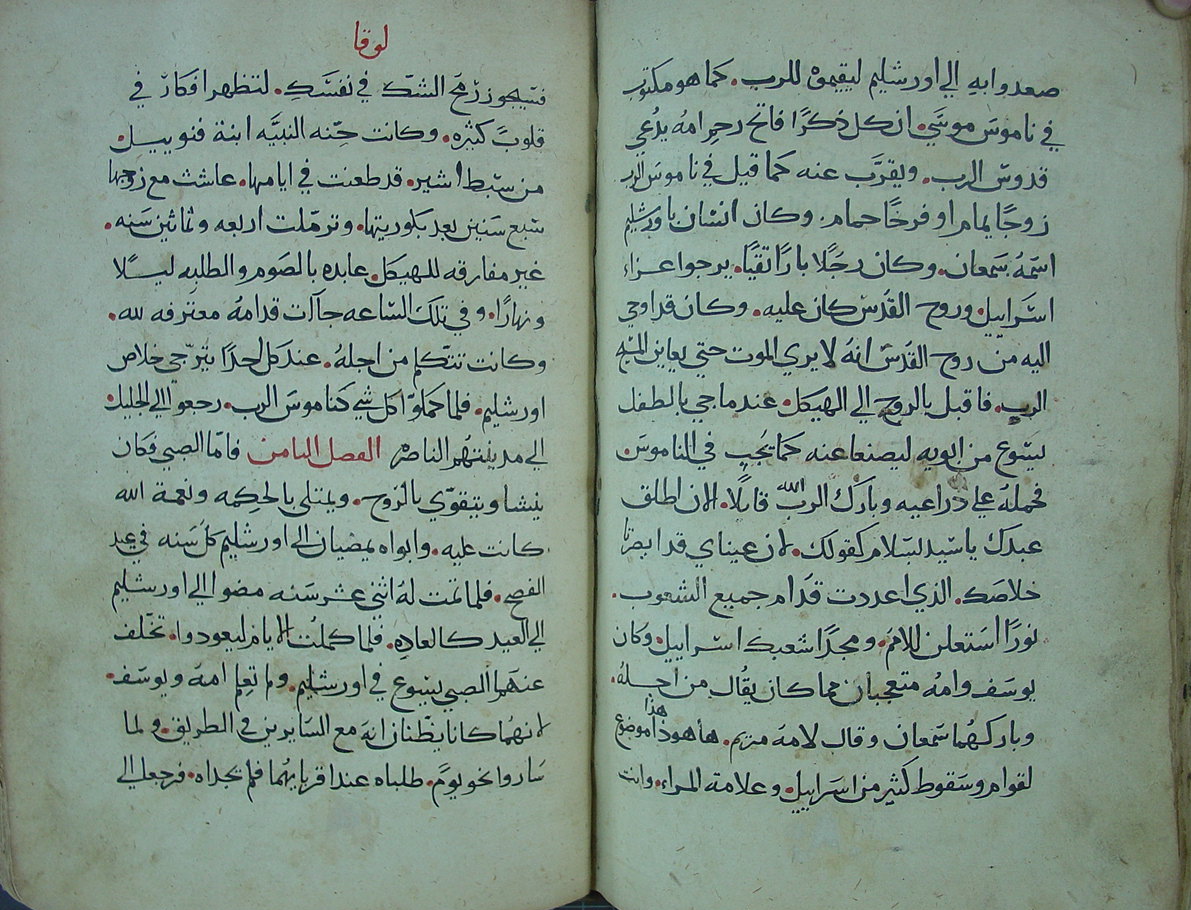 صعدوا به الي اورشليم ليقيموه للرب. كما هو مكتوب
في ناموس موسي. ان كل ذكرًا فاتح رحم امه يدعي
قدوس الرب. ويقرب عنه كما قيل في ناموس الرب
زوجًا يمام او فرخًا حمام. وكان انسان باورشليم
اسمه سمعان. وكان رجلًا بارًا تقيًا. يرجوا عزاء
اسراييل. وروح القدس كان عليه. وكان قد اوحي
اليه من روح القدس انه لا يري الموت حتي يعاين المسيح
الرب. فاقبل بالروح الي الهيكل. عندما جي بالطفل
يسوع من ابويه ليصنعا عنه كما يجب في الناموس.
فحمله علي ذراعيه وبارك الرب الله قايلًا. الان اطلق
عبدك يا سيد بسلام كقولك. لان عيناي قد ابصرتا
خلاصك. الذي اعددت قدام جميع الشعوب.
نورًا استعلن للامم. ومجدًا لشعبك اسراييل. وكان
يوسف وامه متعجبان مما كان يقال من اجله.
وباركهما سمعان وقال لامه مريم. هاهوذا هذا موضوع
لقوام وسقوط كثير من اسراييل. وعلامة المراء. وانت
لوقا
فسيجوز رمح الشك في نفسك. لتظهر افكار في
قلوب كثيره. وكانت حنه النبيه ابنة فنوييل.
من سبط اشير. قد طعنت في ايامها. عاشت مع زوجها
سبع سنين بعد بكوريتها. وترملت اربعه وثمانين سنه.
غير مفارقه للهيكل. عابده بالصوم والطلبه ليلًا
ونهارًا. وفي تلك الساعه جاات قدامه معترفه لله.
وكانت تتكلم من اجله. عند كل احدًا يترجي خلاص
اورشليم. فلما كملوا كل شي كناموس الرب. رجعوا الي الجليل.
الي مدينتهم الناصره الفصل الثامن فاما الصبي فكان
ينشا ويتقوي بالروح. ويمتلي بالحكمه ونعمة الله
كانت عليه. وابواه يمضيان الي اورشليم كل سنه في عيد
الفصح. فلما تمت له اثني عشر سنه مضوا الي اورشليم
الي العيد كالعاده. فلما كملت الايام ليعودوا. تخلف
عنهما الصبي يسوع في اورشليم. ولم تعلم امه ويوسف.
لانهما كانا يظنان انه مع السايرين في الطريق. ولما
ساروا نحو يوم. طلباه عند اقربايهما فلم يجداه. فرجعا الي